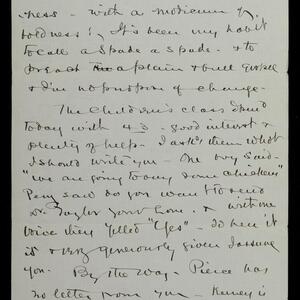 ness - with a modicum of
boldness! It's been my habit
to call a Spade a Spade - & to
preach a plain & full Gospel
& I'm not proposing change -
The Children's class opened
today with 43 - good interest &
plenty of help. I asked them what
I should write you - One boy said -
"We are going to buy some chickens"
Pery saw do you want to send
Dr. Taylor your love. & with one
voice they yelled "Yes" - So here it
is & very generously given I assure
you. By the way - Pierce has
no letter from you - Kenney is